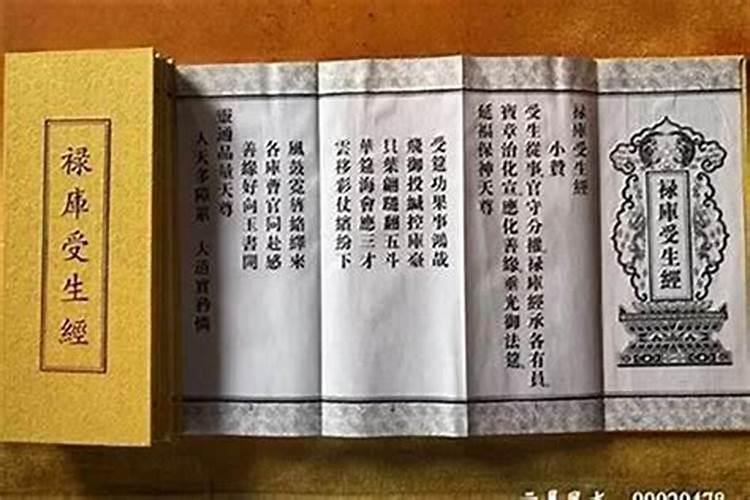 祿庫受生經
祿庫受生經
祿庫受生經
小贊
受生從事官守分權祿庫經承各有員
寶章治化宣應化善緣垂光御法筵
延福保神天尊
受筵功果事鴻哉
飛御投緘控庫臺
貝葉翩翻五斗
華筵海會應三才
雲移彩仗繽紛下
風鼓霓旌絡繹來
各庫曹官同赴感
善緣好向玉書開
靈通品量天尊
人天多障
大道